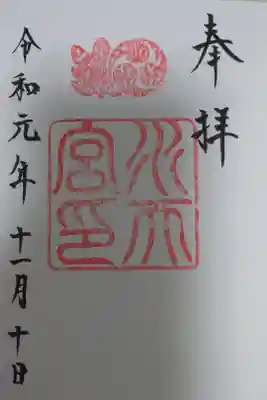 奉拝
水天宮印
令和元年十一月十日